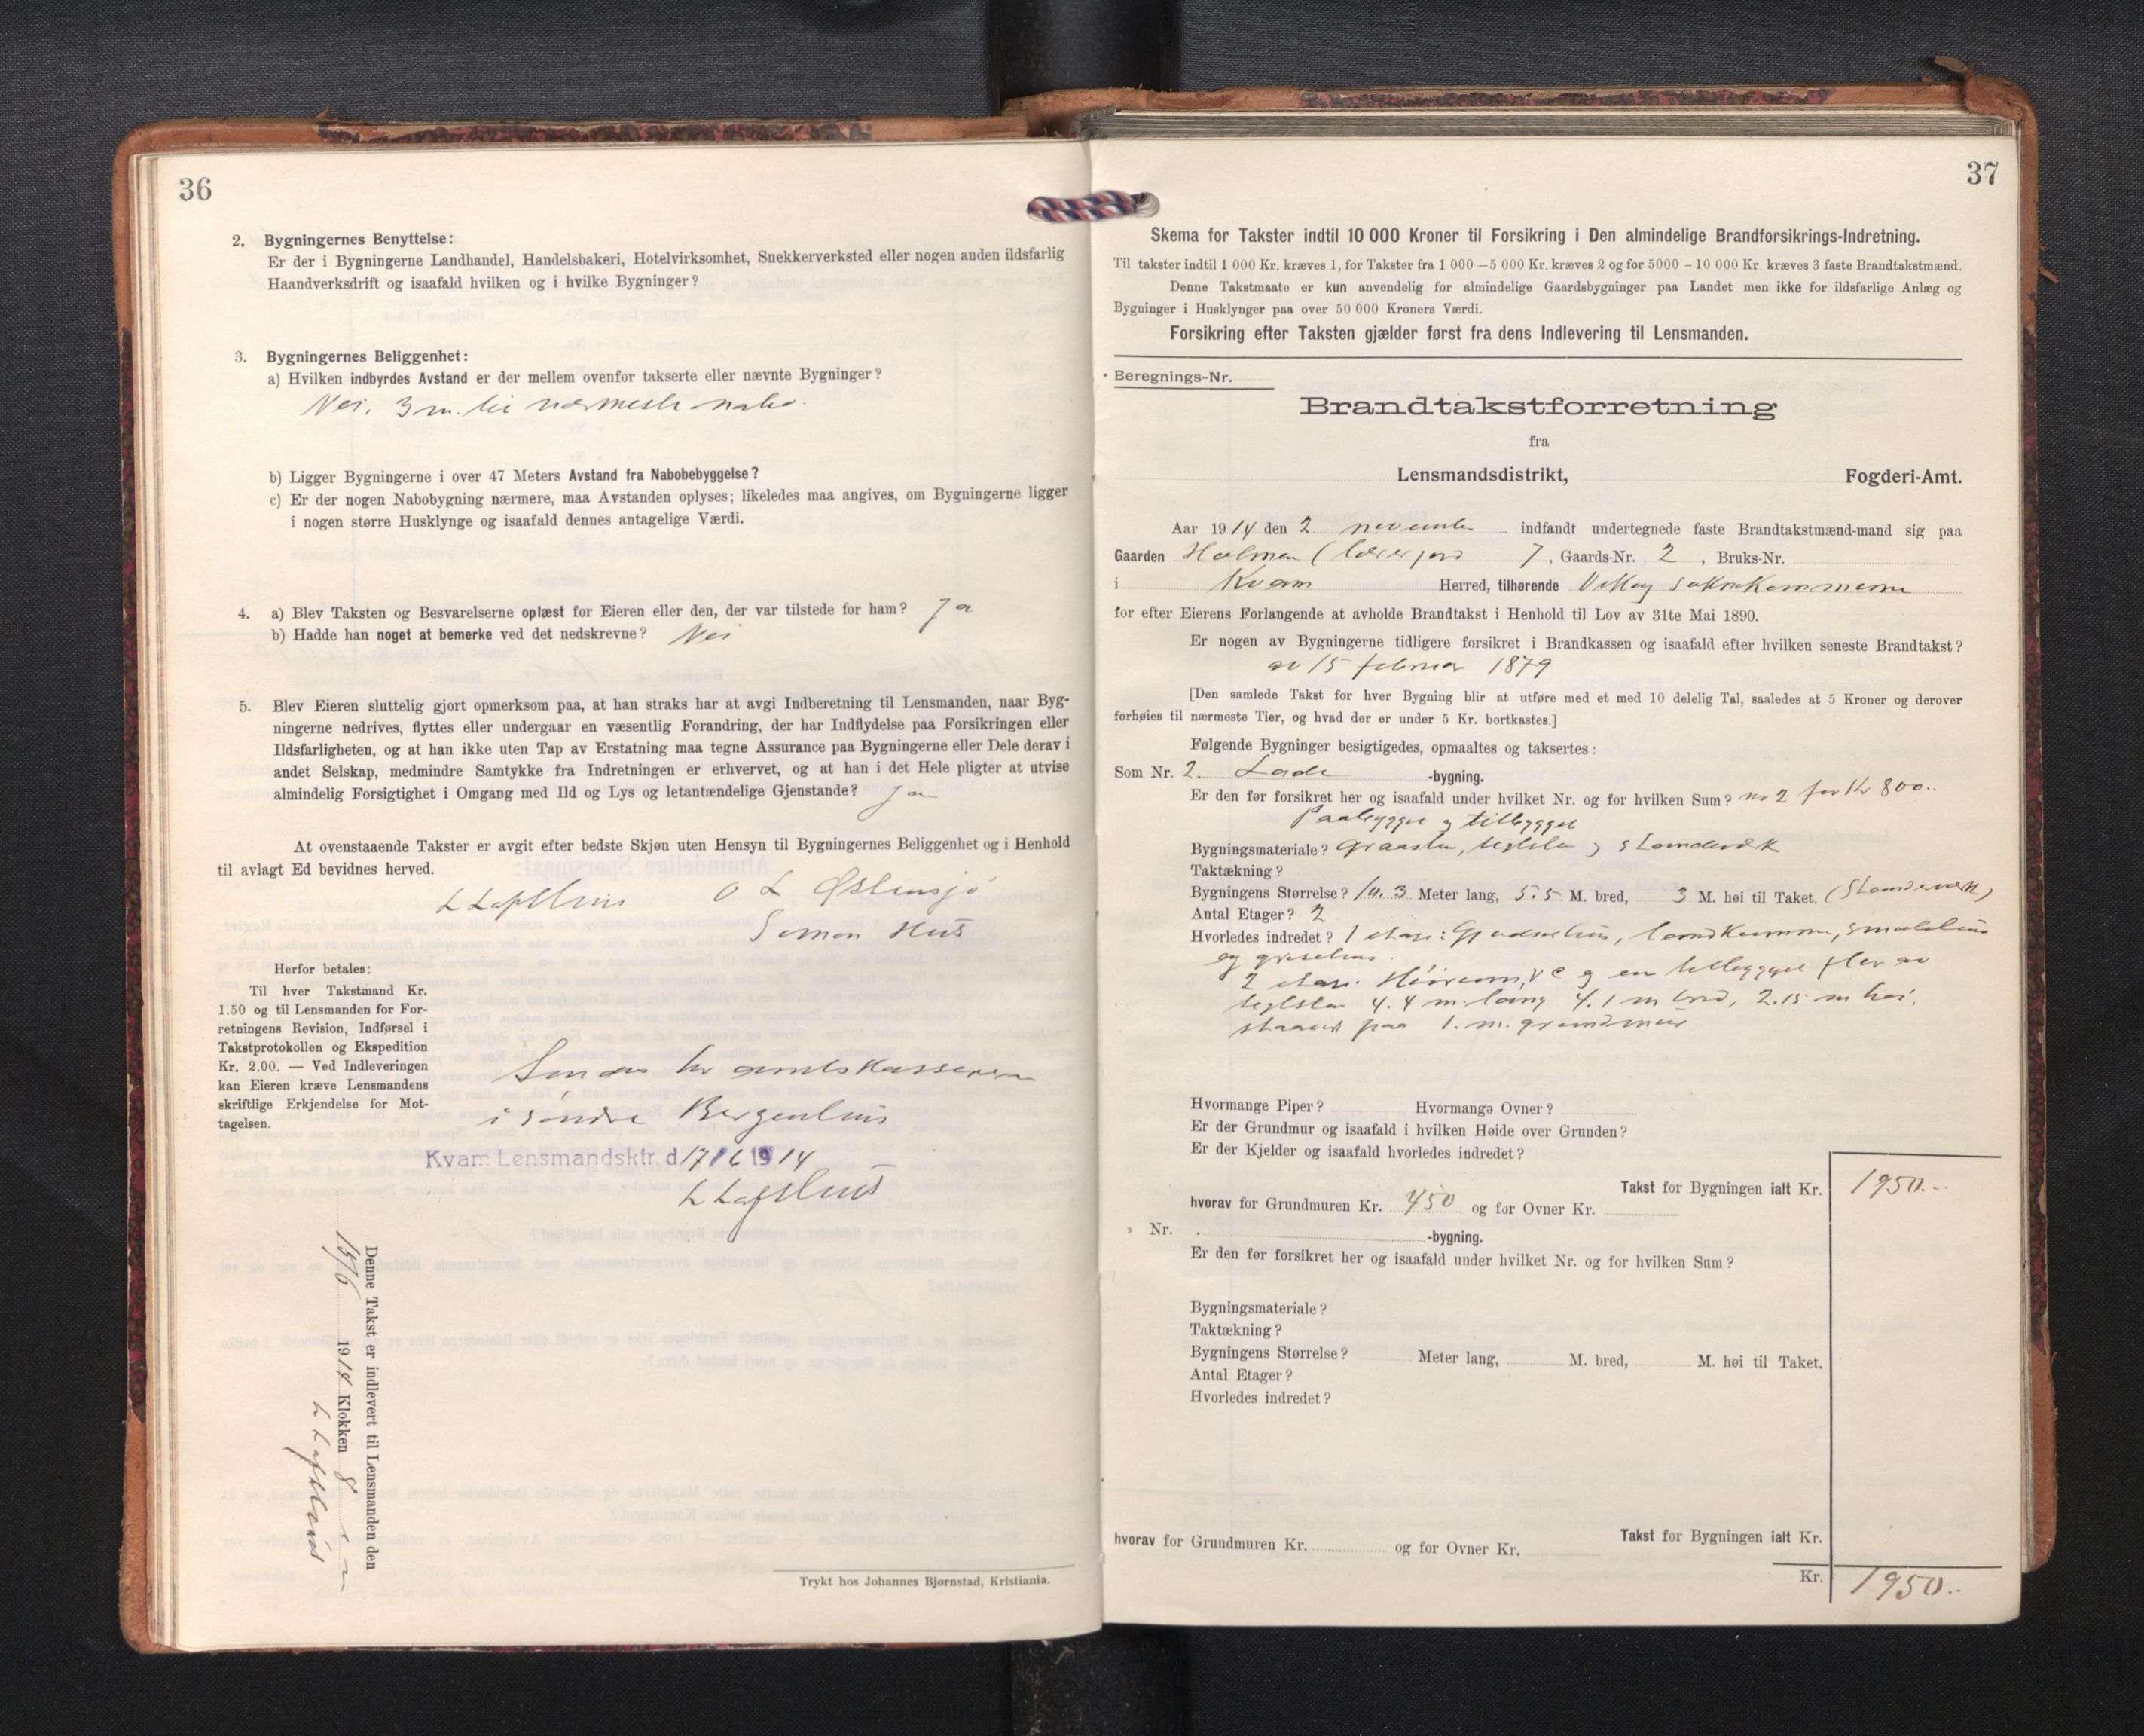 36
2. Bygningernes Benyttelse:
Er der i Bygningerne Landhandel, Handelsbakeri, Hotelvirksomhet, Snekkerverksted eller nogen anden ildsfarlig
Haandverksdrift og isaafald hvilken og i hvilke Bygninger?
3. Bygningernes Beliggenhet:
a) Hvilken indbyrdes Avstand er der mellem ovenfor takserte eller nævnte Bygninger?
Nei, 3 m. til nærmeste nabo.
b) Ligger Bygningerne i over 47 Meters Avstand fra Nabobebyggelse?
c) Er der nogen Nabobygning nærmere, maa Avstanden oplyses; likeledes maa angives, om Bygningerne ligger
i nogen større Husklynge og isaafald dennes antagelige Værdi.
4. a) Blev Taksten og Besvarelserne oplæst for Eieren eller den, der var tilstede for ham? Ja
b) Hadde han noget at bemerke ved det nedskrevne? Nei
5. Blev Eieren sluttelig gjort opmerksom paa, at han straks har at avgi Indberetning til Lensmanden, naar Byg-
ningerne nedrives, flyttes eller undergaar en væsentlig Forandring, der har Indflydelse paa Forsikringen eller
Ildsfarligheten, og at han ikke uten Tap av Erstatning maa tegne Assurance paa Bygningerne eller Dele derav i
andet Selskap, medmindre Samtykke fra Indretningen er erhvervet, og at han i det Hele pligter at utvise
almindelig Forsigtighet i Omgang med Ild og Lys og letantændelige Gjenstande? Ja
At ovenstaaende Takster er avgit efter bedste Skjøn uten Hensyn til Bygningernes Beliggenhet og i Henhold
til avlagt Ed bevidnes herved.
O L Østensjö
Simon Hus
Herfor betales:
Til hver Takstmand Kr.
1.50 og til Lensmanden for For-
retningens Revision, Indførsel i
Takstprotokollen og Ekspedition
Kr. 2.00. — Ved Indleveringen
kan Eieren kræve Lensmandens
skriftlige Erkjendelse for Mot-
tagelsen.
Sendes hr amtskassereren
i söndre Bergenhus
Kvam Lensmandsktr. d. 17/6 1914
Denne Takst er indlevert til Lensmanden den
1914 Klokken 8
Trykt hos Johannes Bjørnstad, Kristiania.
37
Skema for Takster indtil 10 000 Kroner til Forsikring i Den almindelige Brandforsikrings-Indretning.
Til takster indtil 1 000 Kr. kræves 1, for Takster fra 1 000—5 000 Kr. kræves 2 og for 5000—10 000 Kr kræves 3 faste Brandtakstmænd.
Denne Takstmaate er kun anvendelig for almindelige Gaardsbygninger paa Landet men ikke for ildsfarlige Anlæg og
Bygninger i Husklynger paa over 50 000 Kroners Værdi.
Forsikring efter Taksten gjælder først fra dens Indlevering til Lensmanden.
Beregnings-Nr.
Brandtakstforretning
fra
Lensmandsdistrikt, Fogderi-Amt.
Aar 1914 den 2 november indfandt undertegnede faste Brandtakstmænd-mand sig paa
Gaarden Holmen ( 7, Gaards-Nr. 2, Bruks-Nr.
i Kvam Herred, tilhørende Vikøy soknekommune
for efter Eierens Forlangende at avholde Brandtakst i Henhold til Lov av 31te Mai 1890.
Er nogen av Bygningerne tidligere forsikret i Brandkassen og isaafald efter hvilken seneste Brandtakst?
av 15 februar 1879
[Den samlede Takst for hver Bygning blir at utføre med et med 10 delelig Tal, saaledes at 5 Kroner og derover
forhøies til nærmeste Tier, og hvad der er under 5 Kr. bortkastes.]
Følgende Bygninger besigtigedes, opmaaltes og taksertes:
Som Nr. 2. Lade -bygning.
Er den før forsikret her og isaafald under hvilket Nr. og for hvilken Sum? nr 2 for Kr 800..
Paabygget og tilbygget
Bygningsmateriale? Graasten, teglsten og standverk
Taktækning?
Bygningens Størrelse? 10.3 Meter lang, 5.5 M. bred, 3 M. høi til Taket. (Standverk)
Antal Etager? 2
Hvorledes indredet? 1 etase: Gjødselhus, landkumme, smalehus
og grisehus.
2 etase. Höirum, VC og en tilbygget fløi av
teglsten 4.4 m. lang 4.1 m bred, 2.15 m höi.
staaende paa 1. m. grundmur
Hvormange Piper? Hvormange Ovner?
Er der Grundmur og isaafald i hvilken Høide over Grunden?
Er der Kjelder og isaafald hvorledes indredet?
Takst for Bygningen ialt Kr. 1950.-
hvorav for Grundmuren Kr. 450 og for Ovner Kr.
» Nr. -bygning.
Er den før forsikret her og isaafald under hvilket Nr. og for hvilken Sum?
Bygningsmateriale?
Taktækning?
Bygningens Størrelse? Meter lang, M. bred, M. høi til Taket.
Antal Etager?
Hvorledes indredet?
Takst for Bygningen ialt Kr.
hvorav for Grundmuren Kr. og for Ovner Kr.
Kr. 1950..